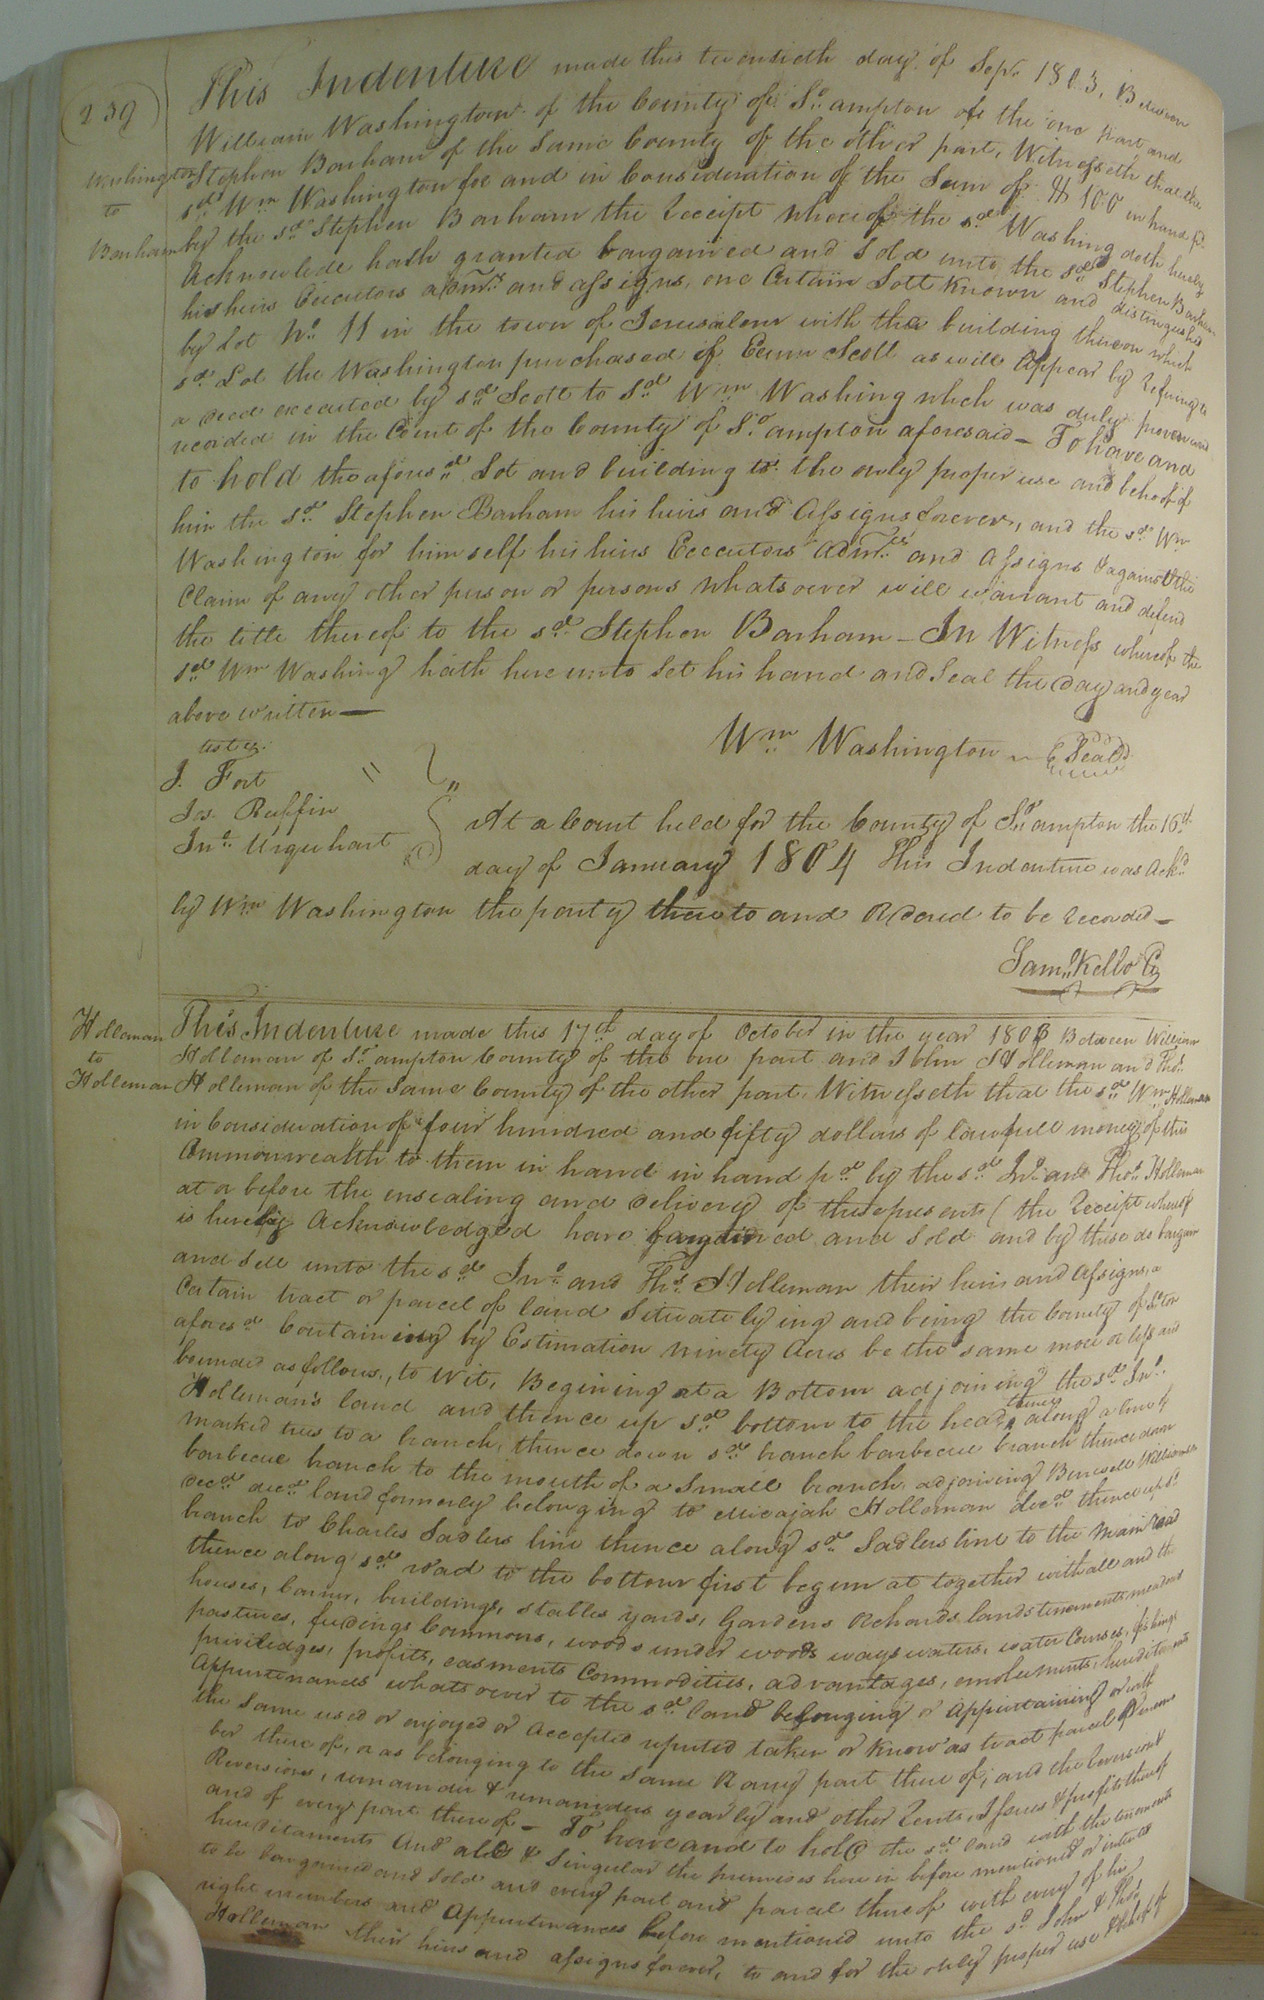 239
This Indenture made this twentieth day of Sepr. 1803, Between
William Washington of the County of So.ampton of the one part and
Washington
to
Barham
Stephen Barham of the Same County of the other part, Witnesseth that the
sd. Wm Washington for and in Consideration of the Sum of 100 in hand pd.
by the sd. Stephen Barham the Receipt whereof the sd. Washing doth hereby
Acknowlede hath granted bargained and Sold unto the sd. Stephen Barham
his heirs Executors admrs. and assigns, one Certain Lott Known and distinguished
by Lot No. 11 in the town of Jerusalem with the building thereon which
sd. Lot the Washington purchased of Scott as will Appear by Refering to
a deed executed by sd. Scott to sd. Wm Washing which was duly proven and
recorded in the Court of the County of So.ampton aforesaid — To have and
to hold the aforesd. Lot and building to the only proper use and behoof of
him the sd. Stephen Barham his heirs and Assigns forever, and the sd. Wm
Washington for him self his heirs Executors Admrs. and Assigns against the
Claim of any other person or persons whatsoever will warrant and defend
the title thereof to the sd. Stephen Barham — In Witness whereof the
sd. Wm Washing hath here unto Set his hand and Seal the Day and year
above written —
Wm Washington (Seal)
J. Fort
Jos. Ruffin
Jno. Urquhart
At a Court held for the County of So.ampton the 16th
day of January 1804 This Indenture was Ackd.
by Wm Washington the party thereto and Ordered to be Recorded —
Saml. Kello Ck
Holleman
to
Holleman
This Indenture made this 17th day of October in the year 1803 Between William
Holleman of So.ampton County of the one part and John Holleman and Thos.
Holleman of the Same County of the other part, Witnesseth that the sd. Wm Holleman
in Consideration of four hundred and fifty dollars of lawfull money of this
Commonwealth to them in hand in hand pd. by the sd. Jno. and Thos. Holleman
at or before the ensealing and delivery of these presents (the Receipt whereof
is hereby Acknowledged have bargained and Sold and by these do bargain
and Sell unto the sd. Jno. and Thos. Holleman their heirs and Assigns, a
Certain tract or parcel of land Situate lying and being the County of So.ton
aforesd. Containing by Estimation ninety Acres be the same more or less and
bounded as follows, to Wit, Begining at a Bottom adjoining the sd. Jno.
Holleman's land and thence up sd. bottom to the head, thence along a line of
marked trees to a branch, thence down sd. branch barbecue branch thence down
barbecue branch to the mouth of a Small branch, adjoining Burwell Williamson
decd. decd. land formerly belonging to Micajah Holleman decd. thence up sd.
branch to Charles Sadlers line thence along sd. Sadlers line to the Main road
thence along sd. road to the bottom first begun at together with all and the
houses, barns, buildings, stables yards, Gardens Orchards, lands tenements meadows
pastures, feedings Commons, woods under woods ways waters, water Courses, fishings
priviledges, profits, easments Commodities, advantages, emoluments, hereditaments
Appurtenances whatsoever to the sd. land belonging or Appurtaining or with
the Same used or enjoyed or Accepted reputed taken or Know as tract parcel or
ber thereof, or as belonging to the Same Or any part there of; and the Reversion &
Reversions, remainder & remainders yearly and other Rents, Issues & profits thereof
and of every part thereof — To have and to hold the sd. land with the tenements
hereditaments And all & Singular the premises here in before mentioned or intended
to be bargained and Sold and every part and parcel thereof with every of his
right members and Appurtenances before mentioned unto the sd. John & Thos.
Holleman their heirs and assigns forever, to and for the only proper use & behoof of